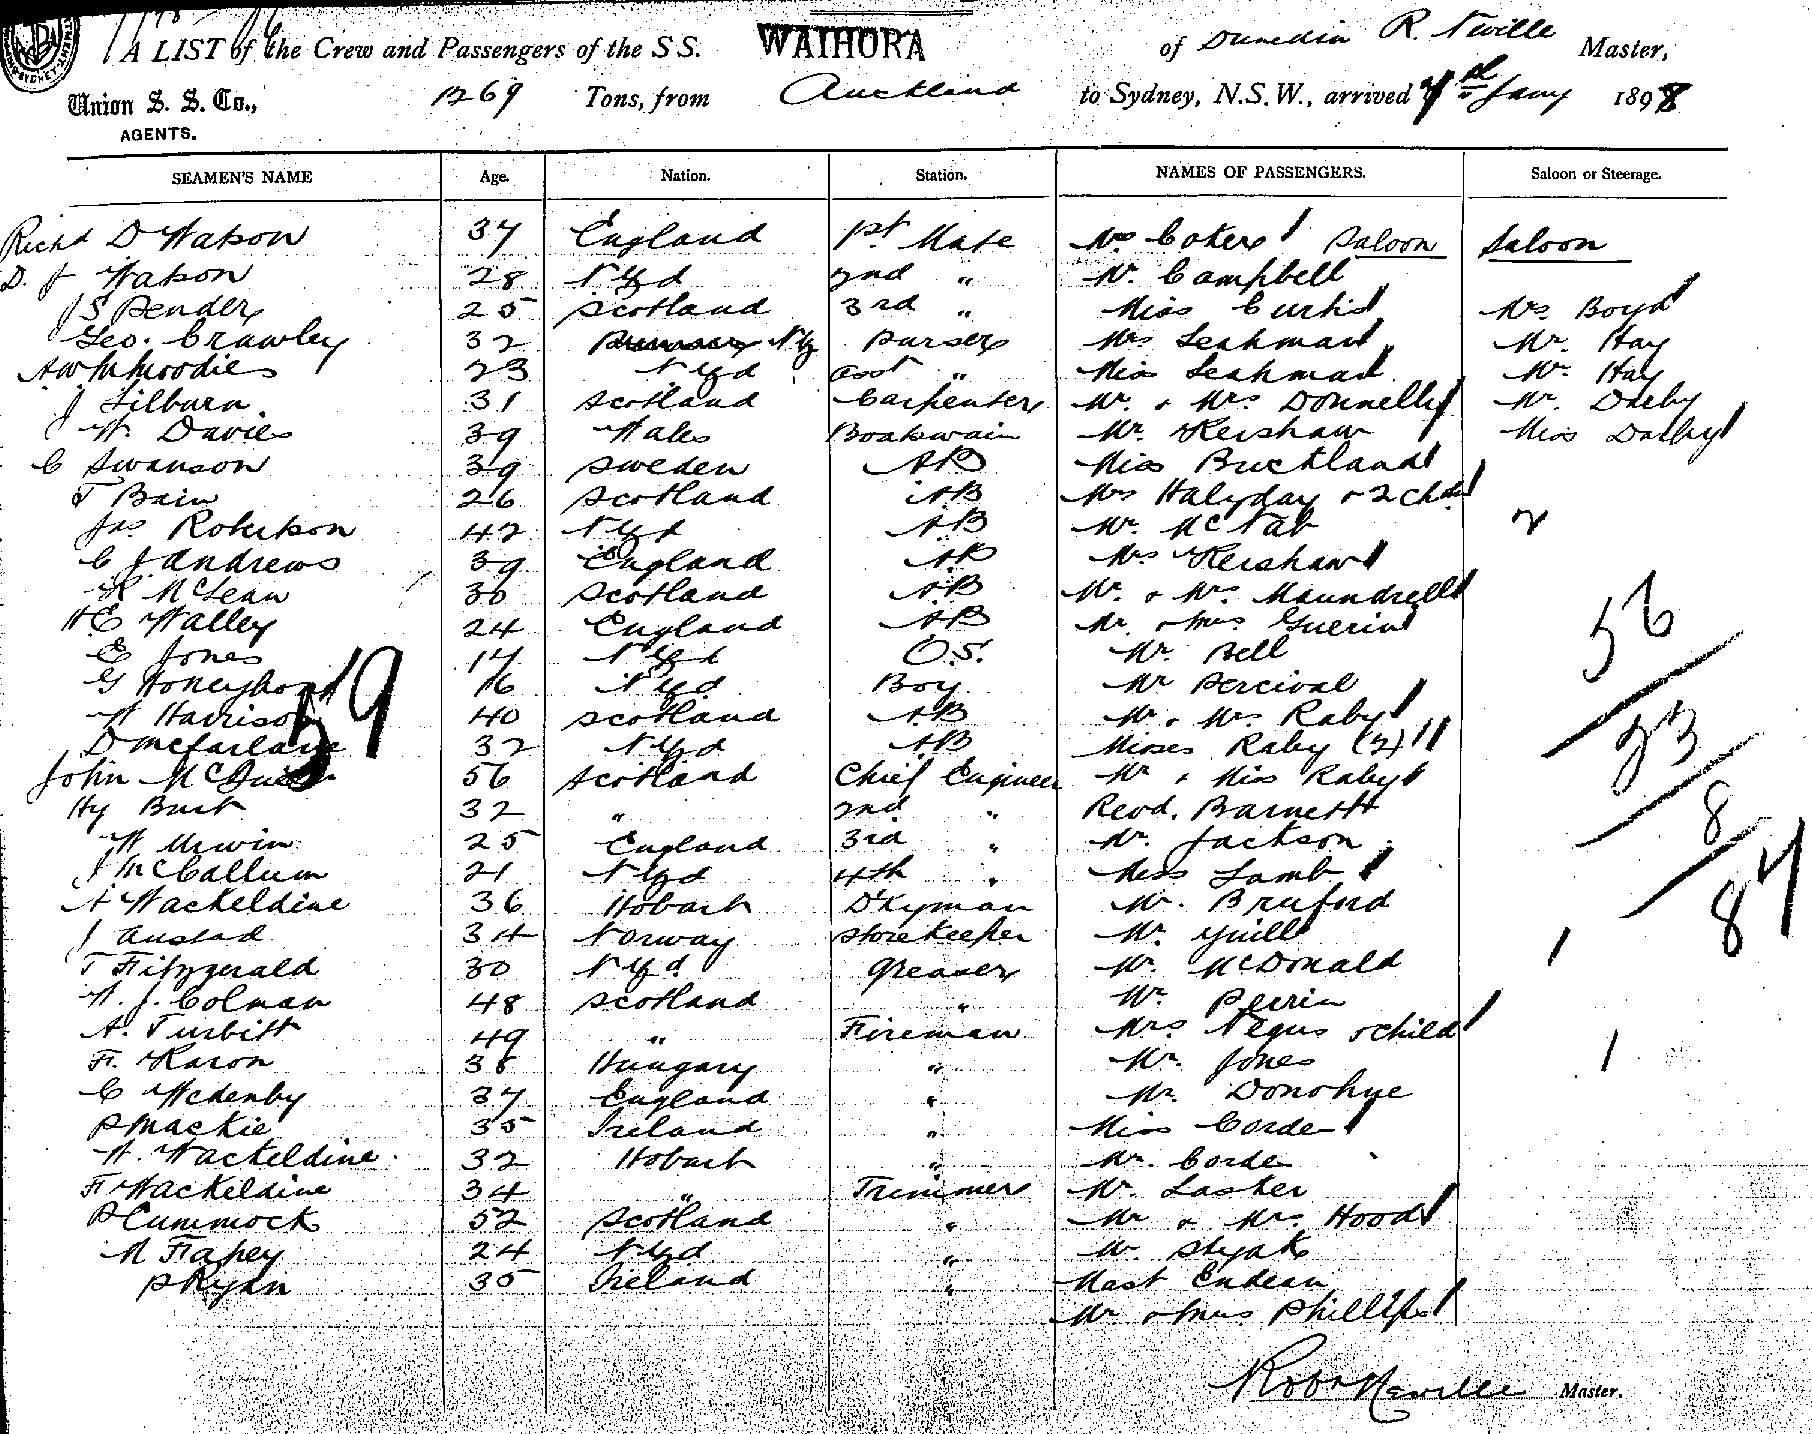 A LIST of the Crew and Passengers of the S S. WAIHORA of Dunedin R. Neville Master,
Union S. S. Co., AGENTS. 1269 Tons, from Auckland to Sydney, N.S.W., arrived Jany 1898
SEAMEN'S NAME Age. Nation. Station. NAMES OF PASSENGERS. Saloon or Steerage.
Richd D Watson 37 England 1st Mate Mrs Coker Saloon Saloon
D. J Watson 28 N Zd 2nd " Mr. Campbell
J S Bender 25 Scotland 3rd " Miss Curtis Mrs Boyd
Geo. Crawley 32 N Z Purser Mrs Leahman Mr. Hay
A W M Moodie 23 N Zd asst " Miss Leahman Mr. Hay
J Lilburn. 31 Scotland Carpenter Mr. & Mrs Donnelly Mr. Darby
W. Davies 39 Wales Boatswain Mr. Kershaw Miss Darby
C Swanson 39 Sweden AB Miss Buckland
T Bain 26 Scotland AB Mrs Halyday & 2 chdn
Jas Robertson 42 N Zd AB Mr. McNab 2
C J Andrews 39 England AB Mrs Kershaw
R McLean 30 Scotland AB Mr. & Mrs. Maundrell
H E Walley 24 England AB Mr. & Mrs Guerin 56
E Jones 17 N Zd O.S. Mr. Bell
G 16 N Zd Boy Mr Percival
W Harrison 40 Scotland AB Mr. & Mrs. Raby
D McFarlane 59 32 N Zd AB Misses Raby (2) 23
John 56 Scotland Chief Engineer Mr & Miss Raby
Hy Burt 32 " 2nd " Revd. Barnett 8
W Mirwin 25 England 3rd " Mr. Jackson
J McCallum 21 N Zd 4th " Miss Lamb
A Wackeldine 36 Hobart D'Kyman Mr. Bruford 87
J Austad 34 Norway Storekeeper Mr. Yuill 1
T Fitzgerald 30 N Zd Greaser Mr. McDonald
W. J. Colman 48 Scotland " Mr. Perrin
A. Turbitt 49 " Fireman Mrs Negus & child
F. Karon 38 Hungary " Mr. Jones 1
C Wedenby 37 England " Mr. Donohue
P Mackie 35 Ireland " Miss Corde
W. Wackeldine 32 Hobart " Mr. Corde
F Wackeldine 34 " Trimmer Mr. Lasker
P Cummock 52 Scotland " Mr & Mrs. Hood
M Fahey 24 N Zd " Mr.
P Ryan 35 Ireland " Mast Endean
Mr & Mrs Phillips
Robt Neville Master.